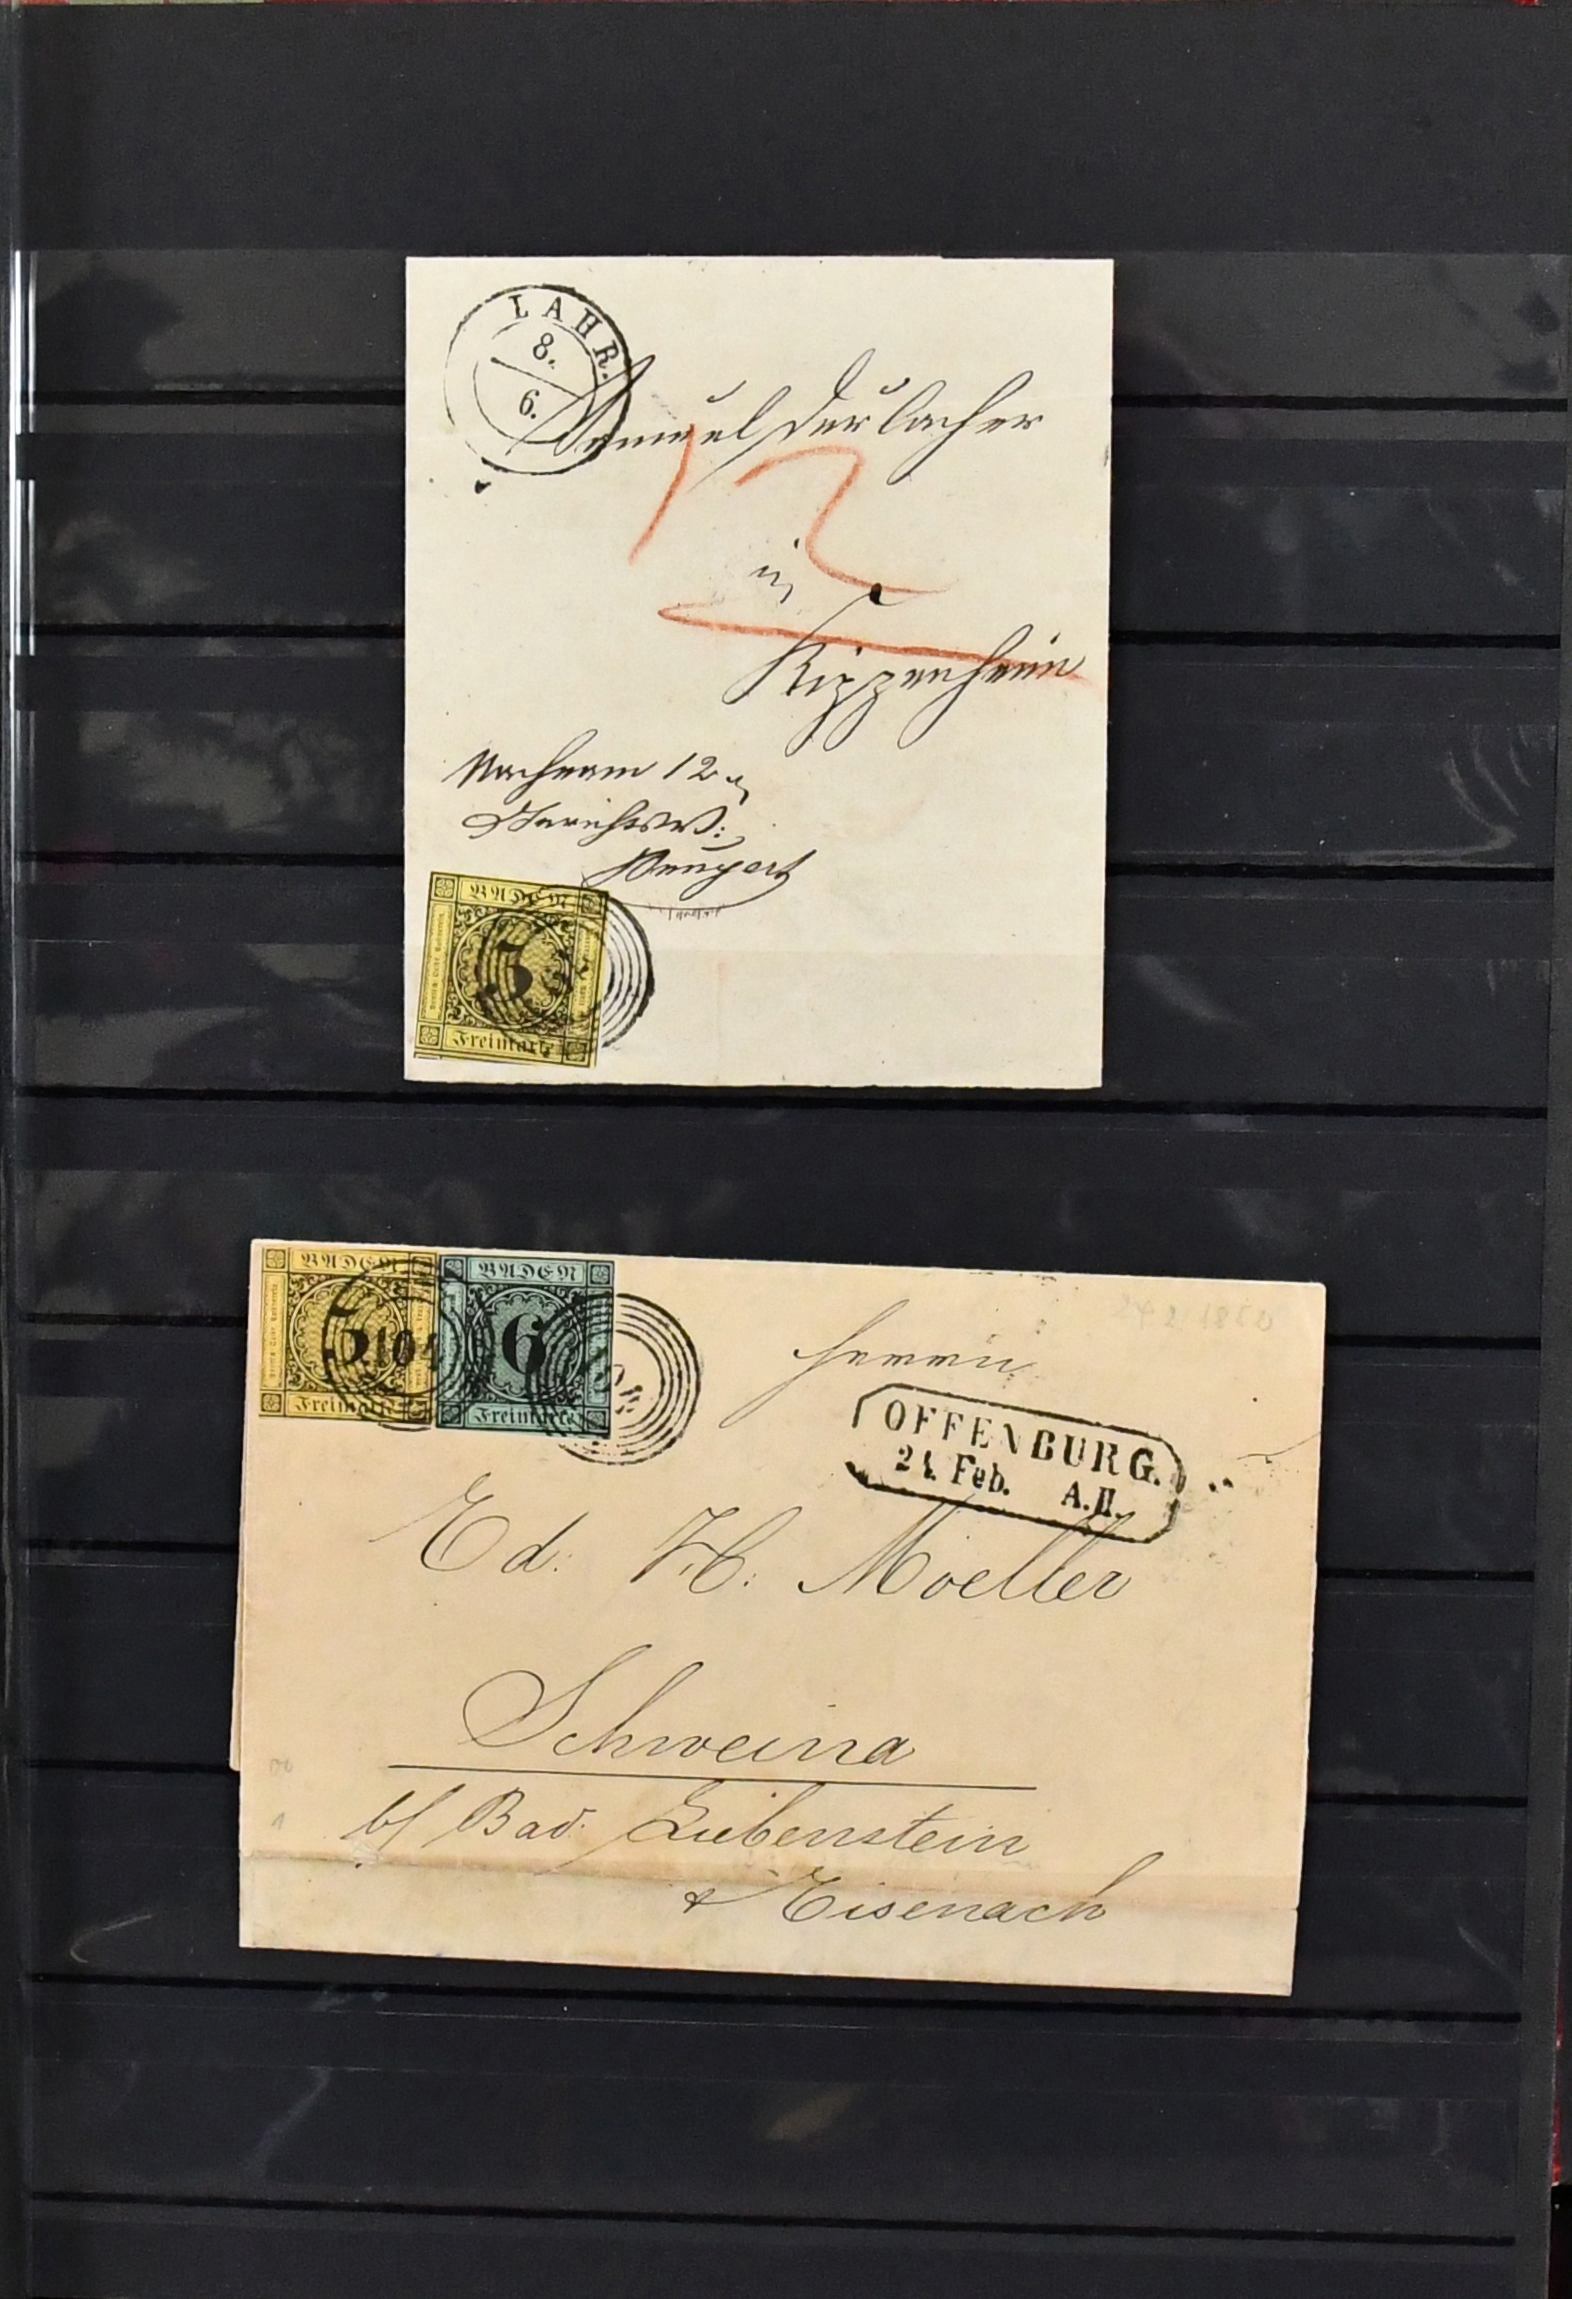 LAHR.
8.
6.
Samuel Durlacher
12
in
Kippenheim
Nachnam 12 x
BADEN
3
Freimarke
BADEN
3
Freimarke
104
BADEN
6
Freimarke
24 2 1852
Herrn
OFFENBURG.
24. Feb. A.II.
Ed: H: Moeller
Schweina
b/ Bad Liebenstein
& Eisenach